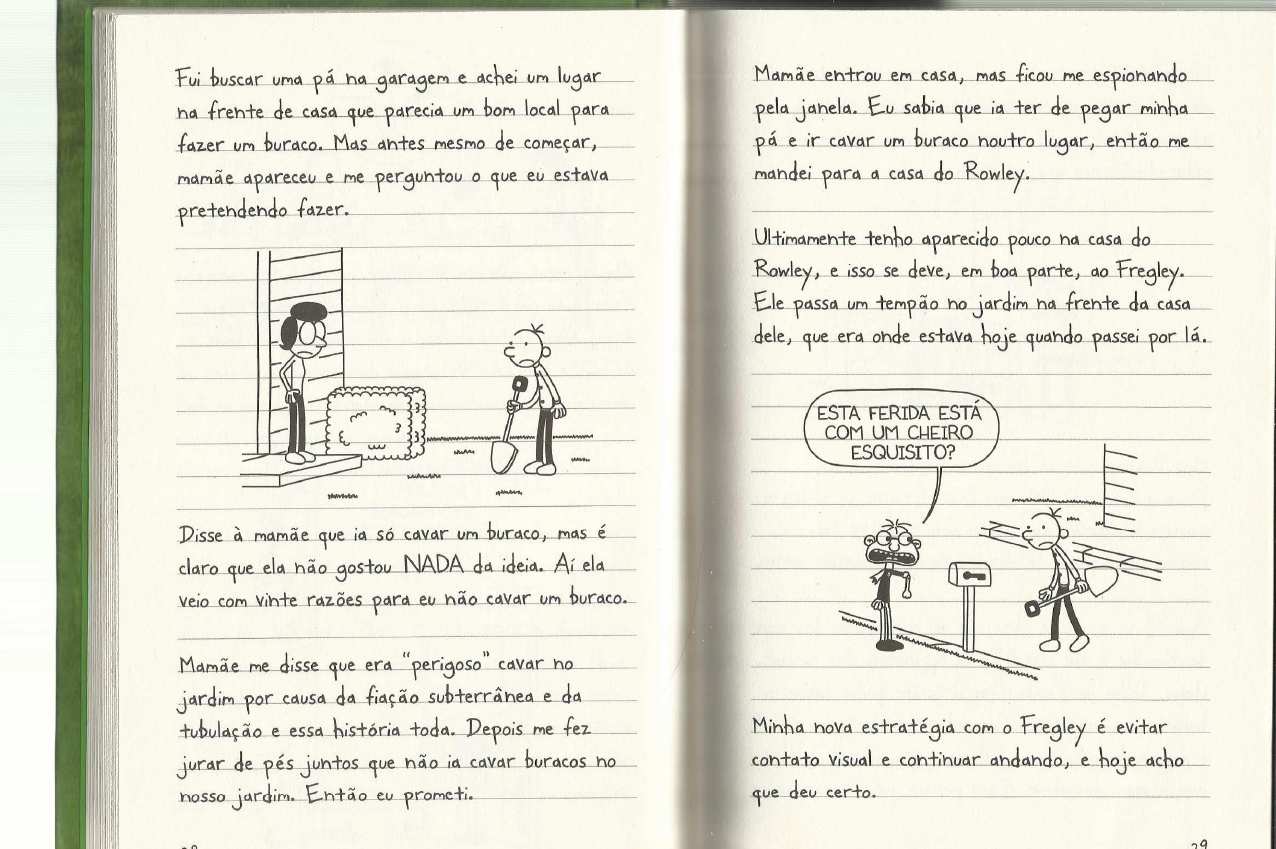 Fui buscar uma pá na garagem e achei um lugar
na frente de casa que parecia um bom local para
fazer um buraco. Mas antes mesmo de começar,
mamãe apareceu e me perguntou o que eu estava
pretendendo fazer.
Disse à mamãe que ia só cavar um buraco, mas é
claro que ela não gostou NADA da ideia. Aí ela
veio com vinte razões para eu não cavar um buraco.
Mamãe me disse que era "perigoso" cavar no
jardim por causa da fiação subterrânea e da
tubulação e essa história toda. Depois me fez
jurar de pés juntos que não ia cavar buracos no
nosso jardim. Então eu prometi.
Mamãe entrou em casa, mas ficou me espionando
pela janela. Eu sabia que ia ter de pegar minha
pá e ir cavar um buraco noutro lugar, então me
mandei para a casa do Rowley.
Ultimamente tenho aparecido pouco na casa do
Rowley, e isso se deve, em boa parte, ao Fregley.
Ele passa um tempão no jardim na frente da casa
dele, que era onde estava hoje quando passei por lá.
ESTA FERIDA ESTÁ
COM UM CHEIRO
ESQUISITO?
Minha nova estratégia com o Fregley é evitar
contato visual e continuar andando, e hoje acho
que deu certo.
29